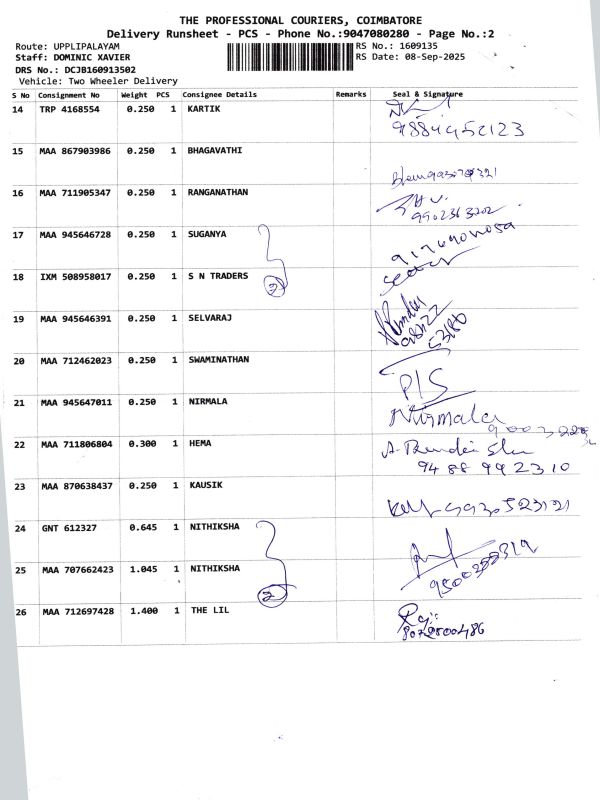 THE PROFESSIONAL COURIERS, COIMBATORE
Delivery Runsheet - PCS - Phone No.:9047080280 - Page No.:2
Route: UPPLIPALAYAM RS No.: 1609135
Staff: DOMINIC XAVIER RS Date: 08-Sep-2025
DRS No.: DCJB160913502
Vehicle: Two Wheeler Delivery
S No Consignment No Weight PCS Consignee Details Remarks Seal & Signature
14 TRP 4168554 0.250 1 KARTIK
15 MAA 867903986 0.250 1 BHAGAVATHI
16 MAA 711905347 0.250 1 RANGANATHAN
9902363202
17 MAA 945646728 0.250 1 SUGANYA
18 IXM 508958017 0.250 1 S N TRADERS
19 MAA 945646391 0.250 1 SELVARAJ
20 MAA 712462023 0.250 1 SWAMINATHAN
P/S
21 MAA 945647011 0.250 1 NIRMALA Nirmala
22 MAA 711806804 0.300 1 HEMA
94 88 992310
23 MAA 870638437 0.250 1 KAUSIK
24 GNT 612327 0.645 1 NITHIKSHA
25 MAA 707662423 1.045 1 NITHIKSHA
2
26 MAA 712697428 1.400 1 THE LIL